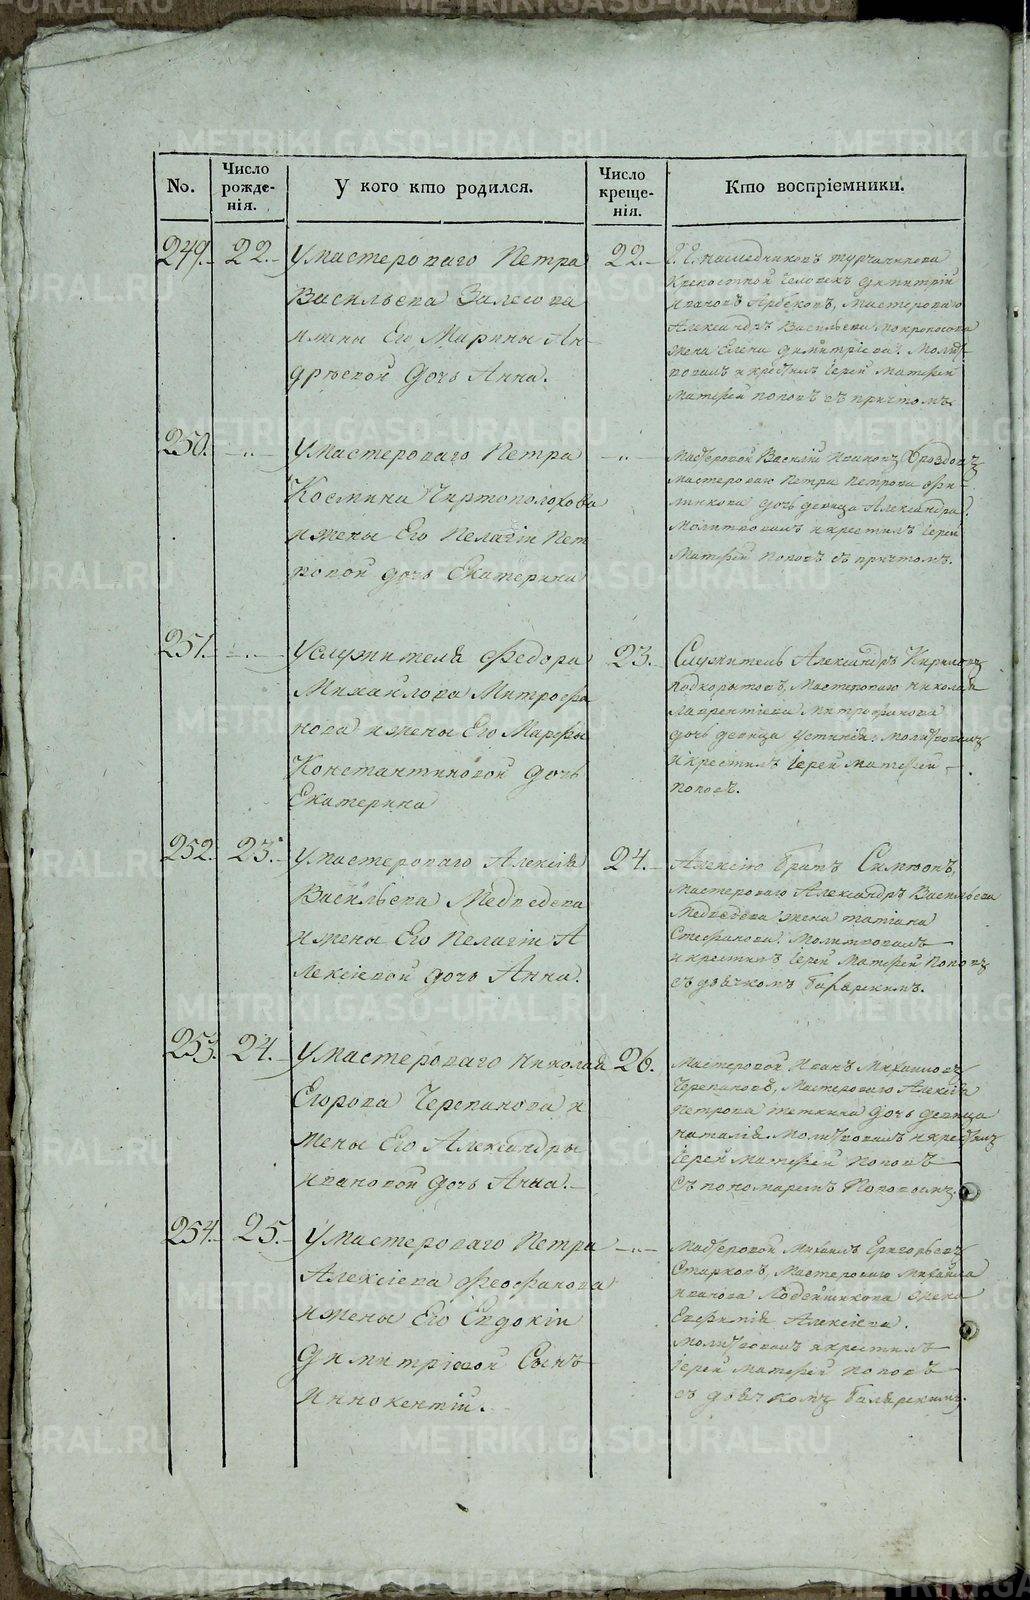 No.
Число рожденія.
У кого кто родился.
Число крещенія.
Кто воспріемники.
249.
22.
У мастероваго Петра
Васильева Залесова
и жены Его Марины Ан-
дрѣевой дочь Анна.
22.
Г. Г. наследниковъ Турчанинова
Крепостной человекъ Димитрій
Ивановъ Арбековъ, Мастероваго
Александръ Васильева Мокроносова
жена Елена Димитріева. Молит-
вовалъ и крестилъ Іерей Матфей
Матфей Поповъ съ причтомъ.
250.
-„-
У мастероваго Петра
Космина Чертополохова
и жены Его Пелагіи Пет
ровой дочь Екатерина
-„-
Мастеровой Василій Ивановъ Дроздовъ
Мастероваго Петра Петрова
дочь девица Александра.
Молитвовалъ и крестилъ Іерей
Матфей Поповъ съ причтомъ.
251.
-„-
У служителя Федора
Михайлова Митрофа
нова и жены Его Марфы
Константиновой дочь
Екатерина
23.
Служитель Александръ Кириловъ
Подкорытовъ, Мастероваго Николая
Лаврентіева Митрофанова
дочь девица Устинія. Молитвовалъ
и крестилъ Іерей Матфей
Поповъ.
252.
23.
У мастероваго Алексія
Васильева Медведева
и жены Его Пелагіи А
лексіевой дочь Анна.
24.
Алексію братъ Симеонъ,
Мастероваго Александръ Васильева
Медведева жена Татіана
Стефанова. Молитвовалъ
и крестилъ Іерей Матфей Поповъ
съ дьячкомъ
253.
24.
У мастероваго Николая
Егорова Черепанова и
жены Его Александры
Ивановой дочь Анна.
26.
Мастеровой Иванъ Михаиловъ
Черепановъ, Мастероваго Алексія
Петрова Теткина дочь девица
Наталія. Молитвовалъ и крестилъ
Іерей Матфей Поповъ
Съ пономаремъ Поповымъ.
254.
25.
У мастероваго Петра
Алексіева Феофанова
и жены Его Евдокіи
Димитріевой Сынъ
Иннокентій.
-„-
Мастеровой Михаилъ Григорьевъ
Старковъ, Мастероваго Михаила
Иванова Лодейщикова жена
Евфимія Алексіева.
Молитвовалъ и крестилъ
Іерей Матфей Поповъ
съ дьячкомъ
METRIKI.GASO-URAL.RU